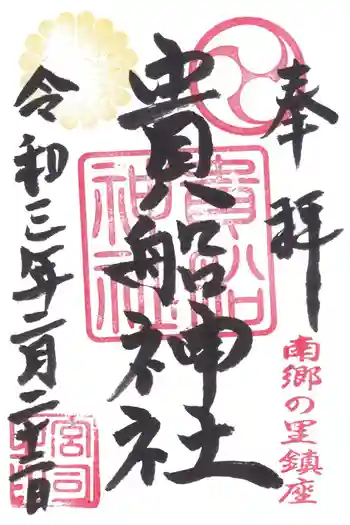 奉拝
南郷の里鎮座
貴船神社
貴船神社
令和三年二月二十二日
宮司之印